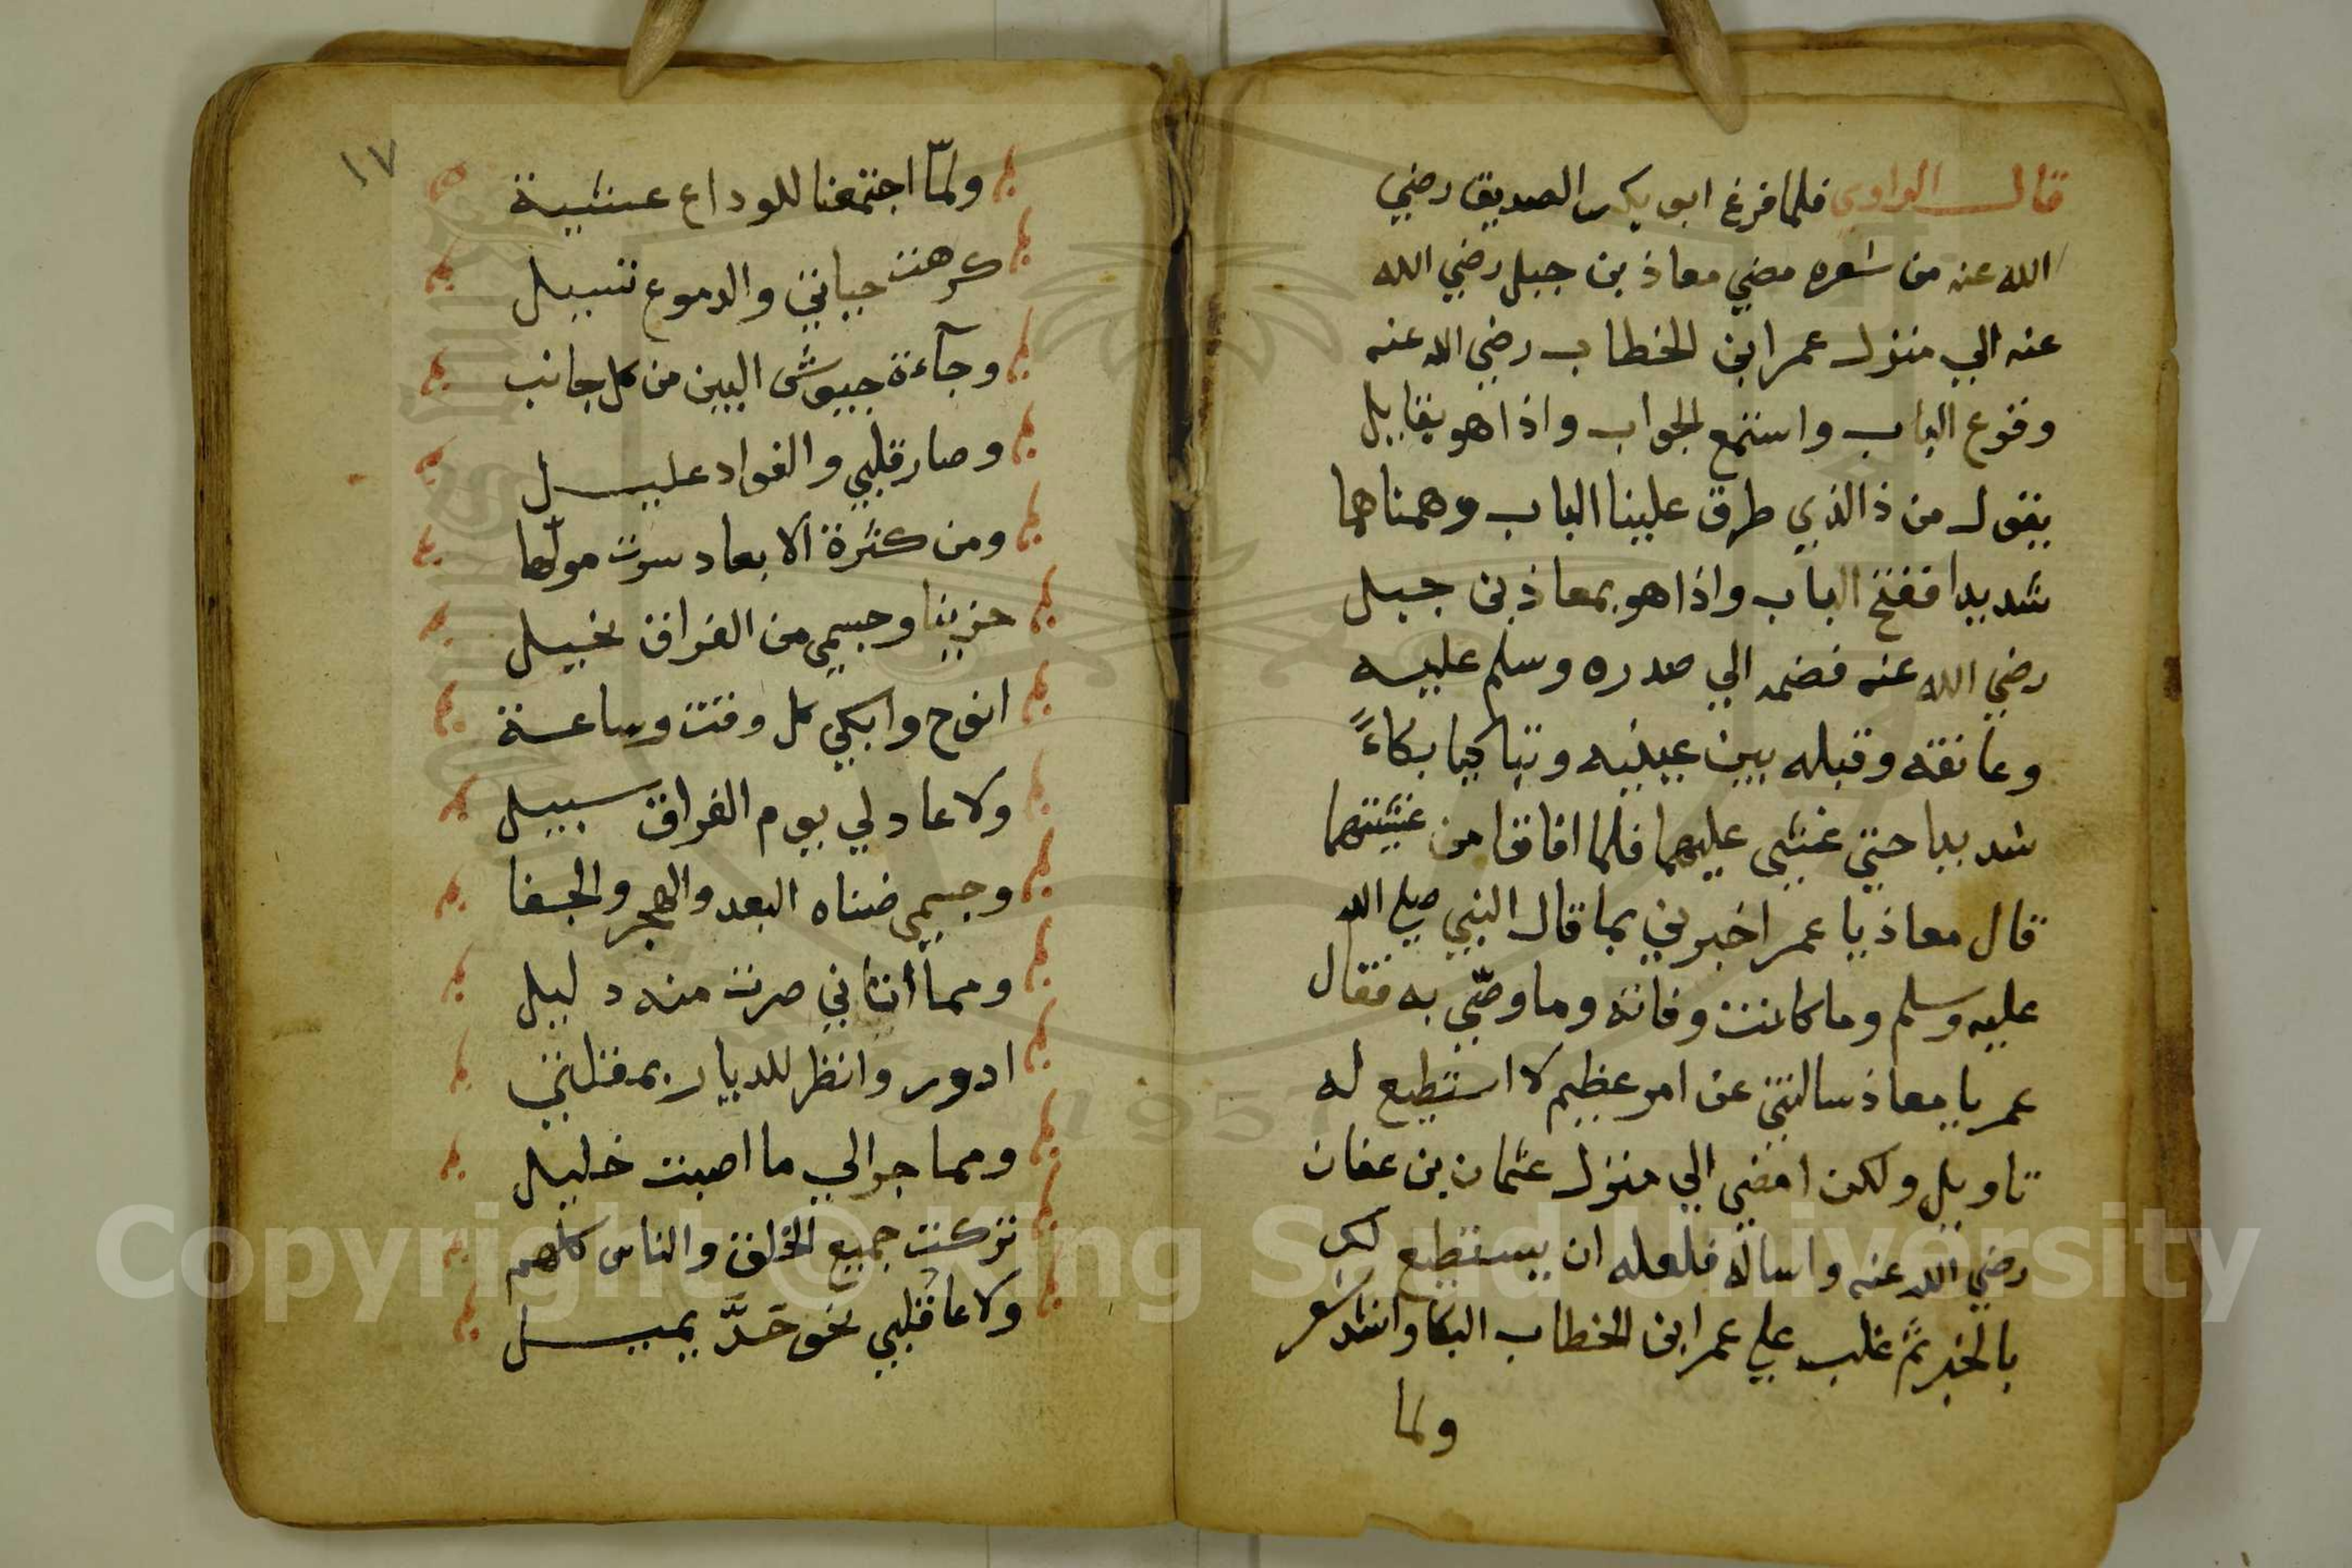 قال الراوي فلما فرغ ابو بكر الصديق رضي
الله عنه من شعره مضي معاذ بن جبل رضي الله
عنه الي منزل عمر ابن الخطاب رضي الله عنه
وقرع الباب واستمع الجواب واذا هو بقايل
يقول من ذا الذي طرق علينا الباب وهمنا هما
شديدا ففتح الباب واذا هو بمعاذ بن جبل
رضي الله عنه فضمه الي صدره وسلم عليه
وعانقه وقبله بين عينيه وتباكيا بكاءً
شديدا حتي غشي عليهما فلما افاقا من غشيتهما
قال معاذ يا عمر اخبرني بما قال النبي صلي الله
عليه وسلم وما كانت وفاته وما وصّي به فقال
عمر يا معاذ سالتني عن امر عظيم لا استطيع له
تاويل ولكن امضي الي منزل عثمان بن عفان
رضي الله عنه واساله فلعله ان يستطيع لك
بالخبر ثم غلب علي عمر ابن الخطاب البكا وانشد شعر
ولما
١٧
ولمّا اجتمعنا للوداع عشية
كرهت حياتي والدموع تسيل
وجآءة جيوش البين من كل جانب
وصار قلبي والفواد عليل
ومن كثرة الابعاد سرت مولها
حزينا وجسمي من الفراق نحيل
انوح وابكي كل وقت وساعة
ولا عاد لي يوم الفراق سبيل
وجسمي ضناه البعد والهجر والجفا
ومما أتاني صرت منه دليل
ادور وانظر للديار بمقلتي
ومما جرالي ما اصبت خليل
تركت جميع الخلق والناس كلهم
ولا عاقلبي نحو حَدَّ يميل
Copyright © King Saud University
1957